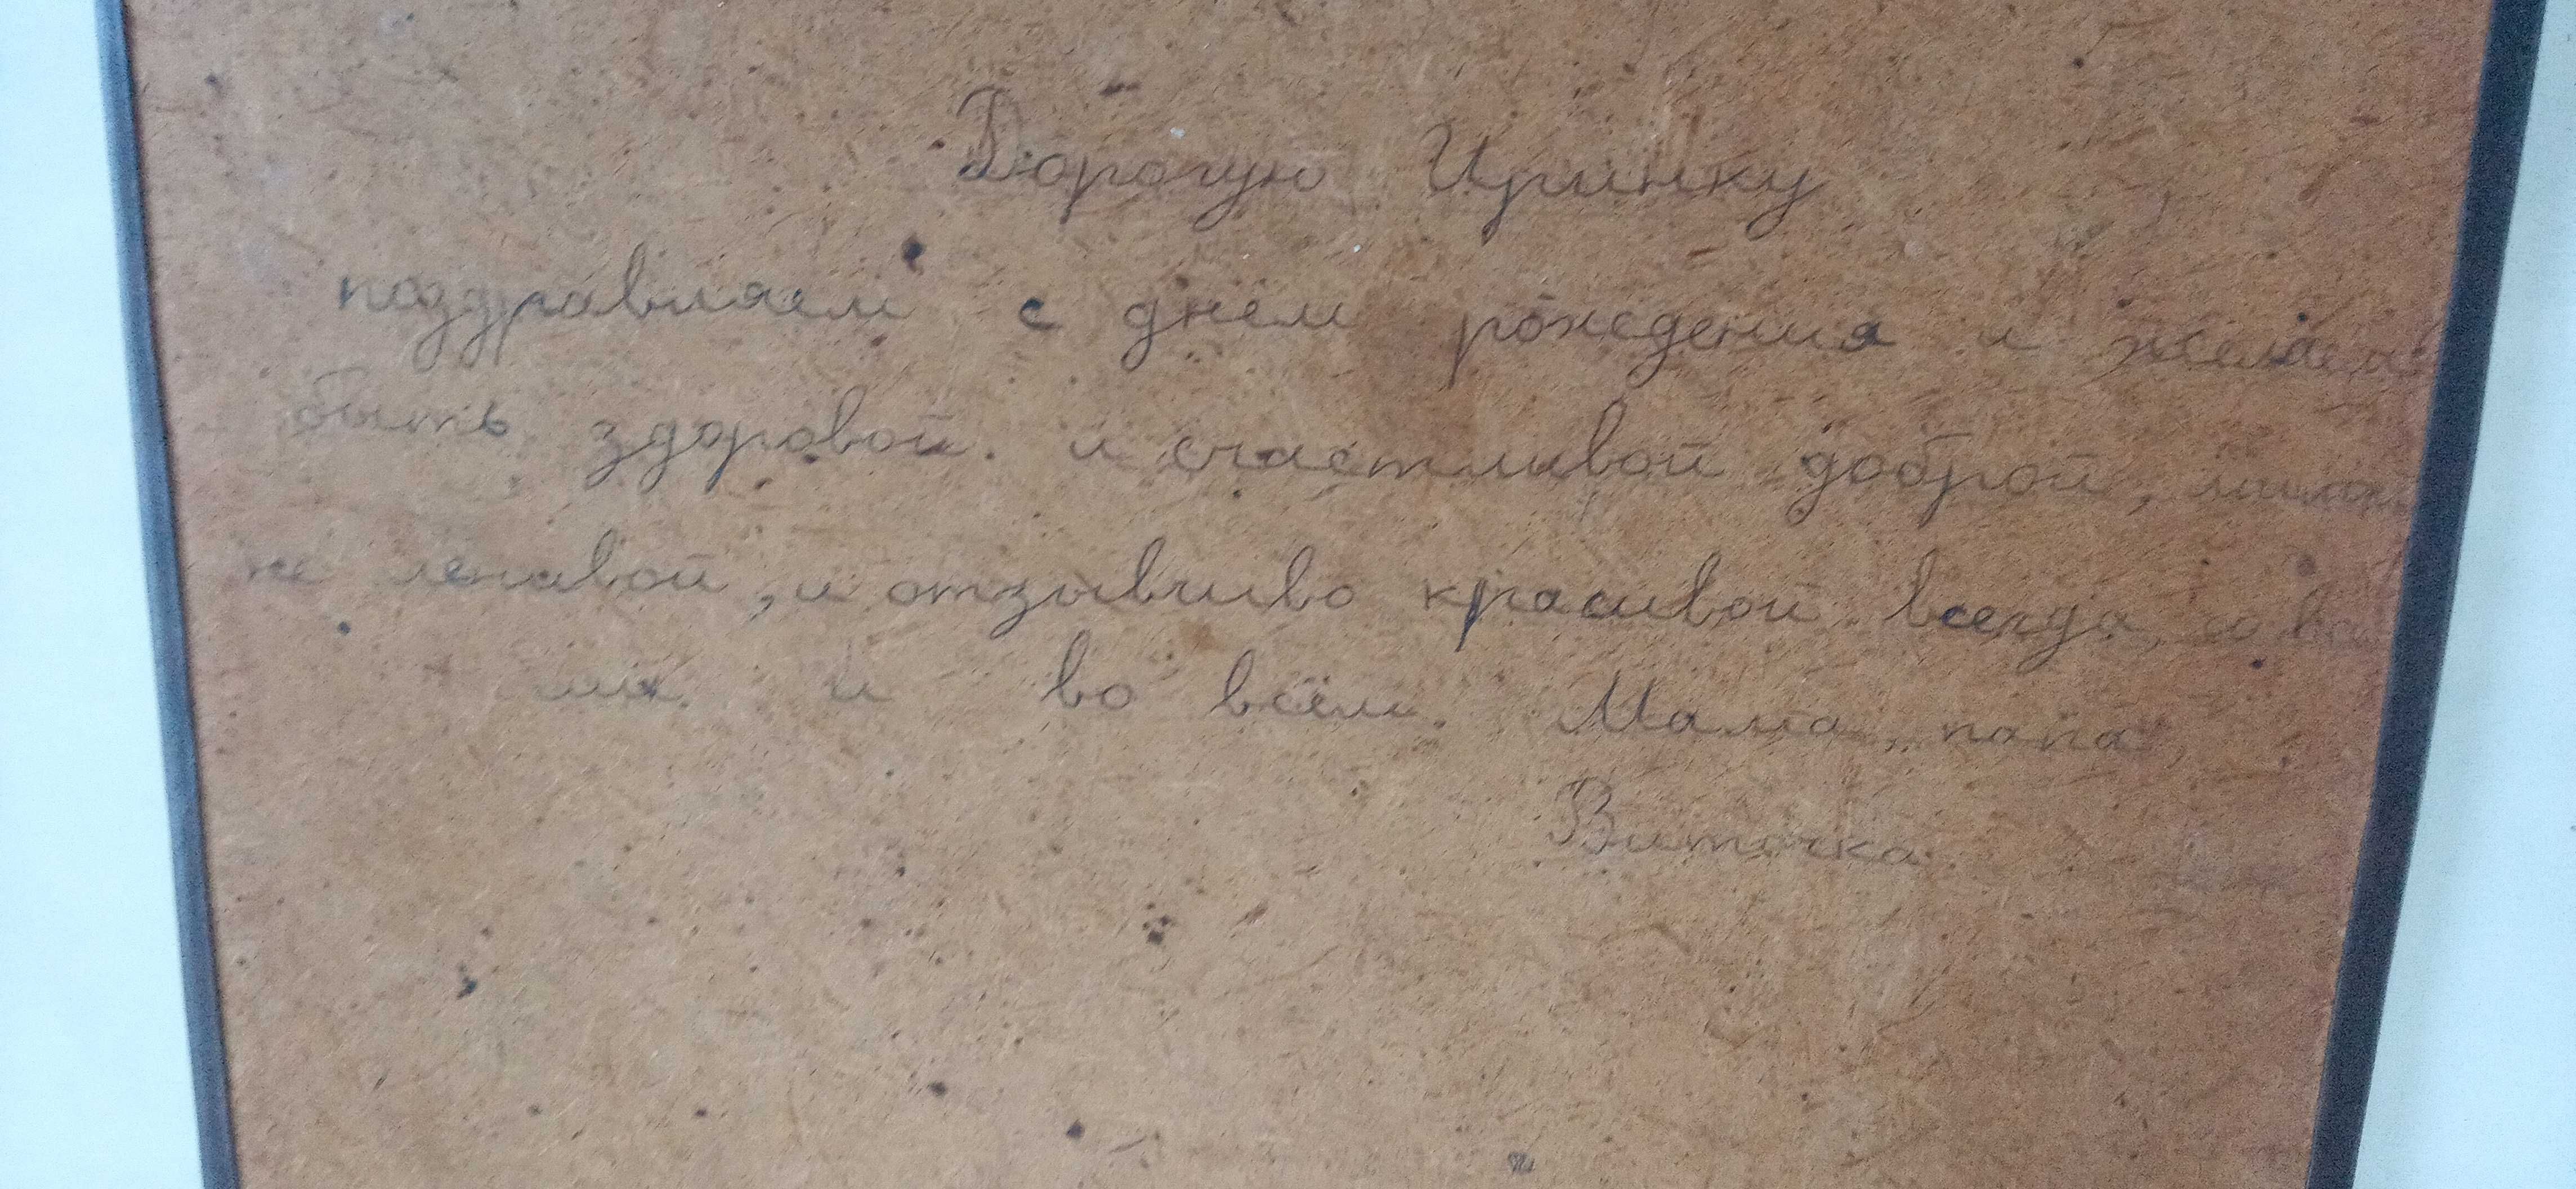 Дорогую Иринку
поздравляем с днём рождения и желаем
быть здоровой. и счастливой доброй,
не ленивой, и отзывчиво красивой всегда,
и во всём. Мама, папа,
Виточка.